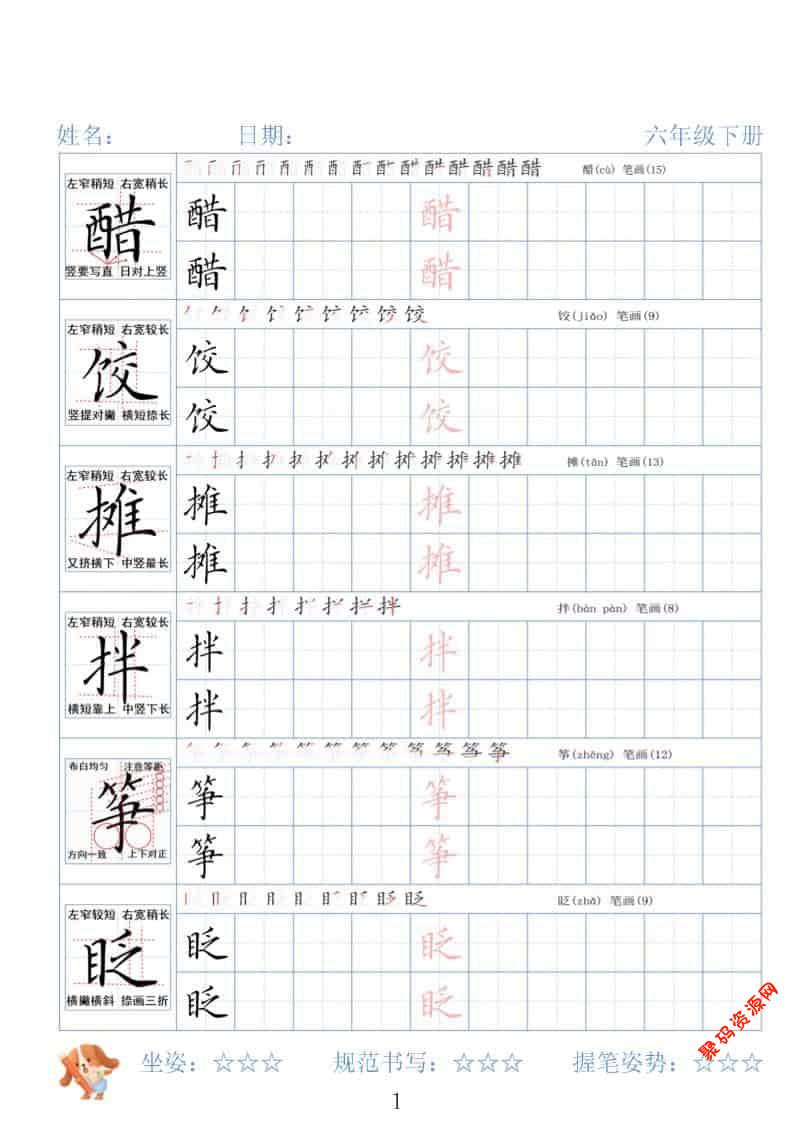 姓名： 日期： 六年级下册
醋(cù) 笔画(15)
左窄稍短 右宽稍长
醋
竖要写直 日对上竖
醋 醋
醋 醋
饺(jiǎo) 笔画(9)
左窄稍短 右宽较长
饺
竖提对撇 横短捺长
饺 饺
饺 饺
摊(tān) 笔画(13)
左窄稍短 右宽较长
摊
又挤横下 中竖最长
摊 摊
摊 摊
拌(bàn pàn) 笔画(8)
左窄稍短 右宽较长
拌
横短靠上 中竖下长
拌 拌
拌 拌
筝(zhēng) 笔画(12)
布白均匀 注意等距
筝
方向一致 上下对正
筝 筝
筝 筝
眨(zhǎ) 笔画(9)
左窄较短 右宽稍长
眨
横撇横斜 捺画三折
眨 眨
眨 眨
聚码资源网
坐姿：☆☆☆ 规范书写：☆☆☆ 握笔姿势：☆☆☆
1